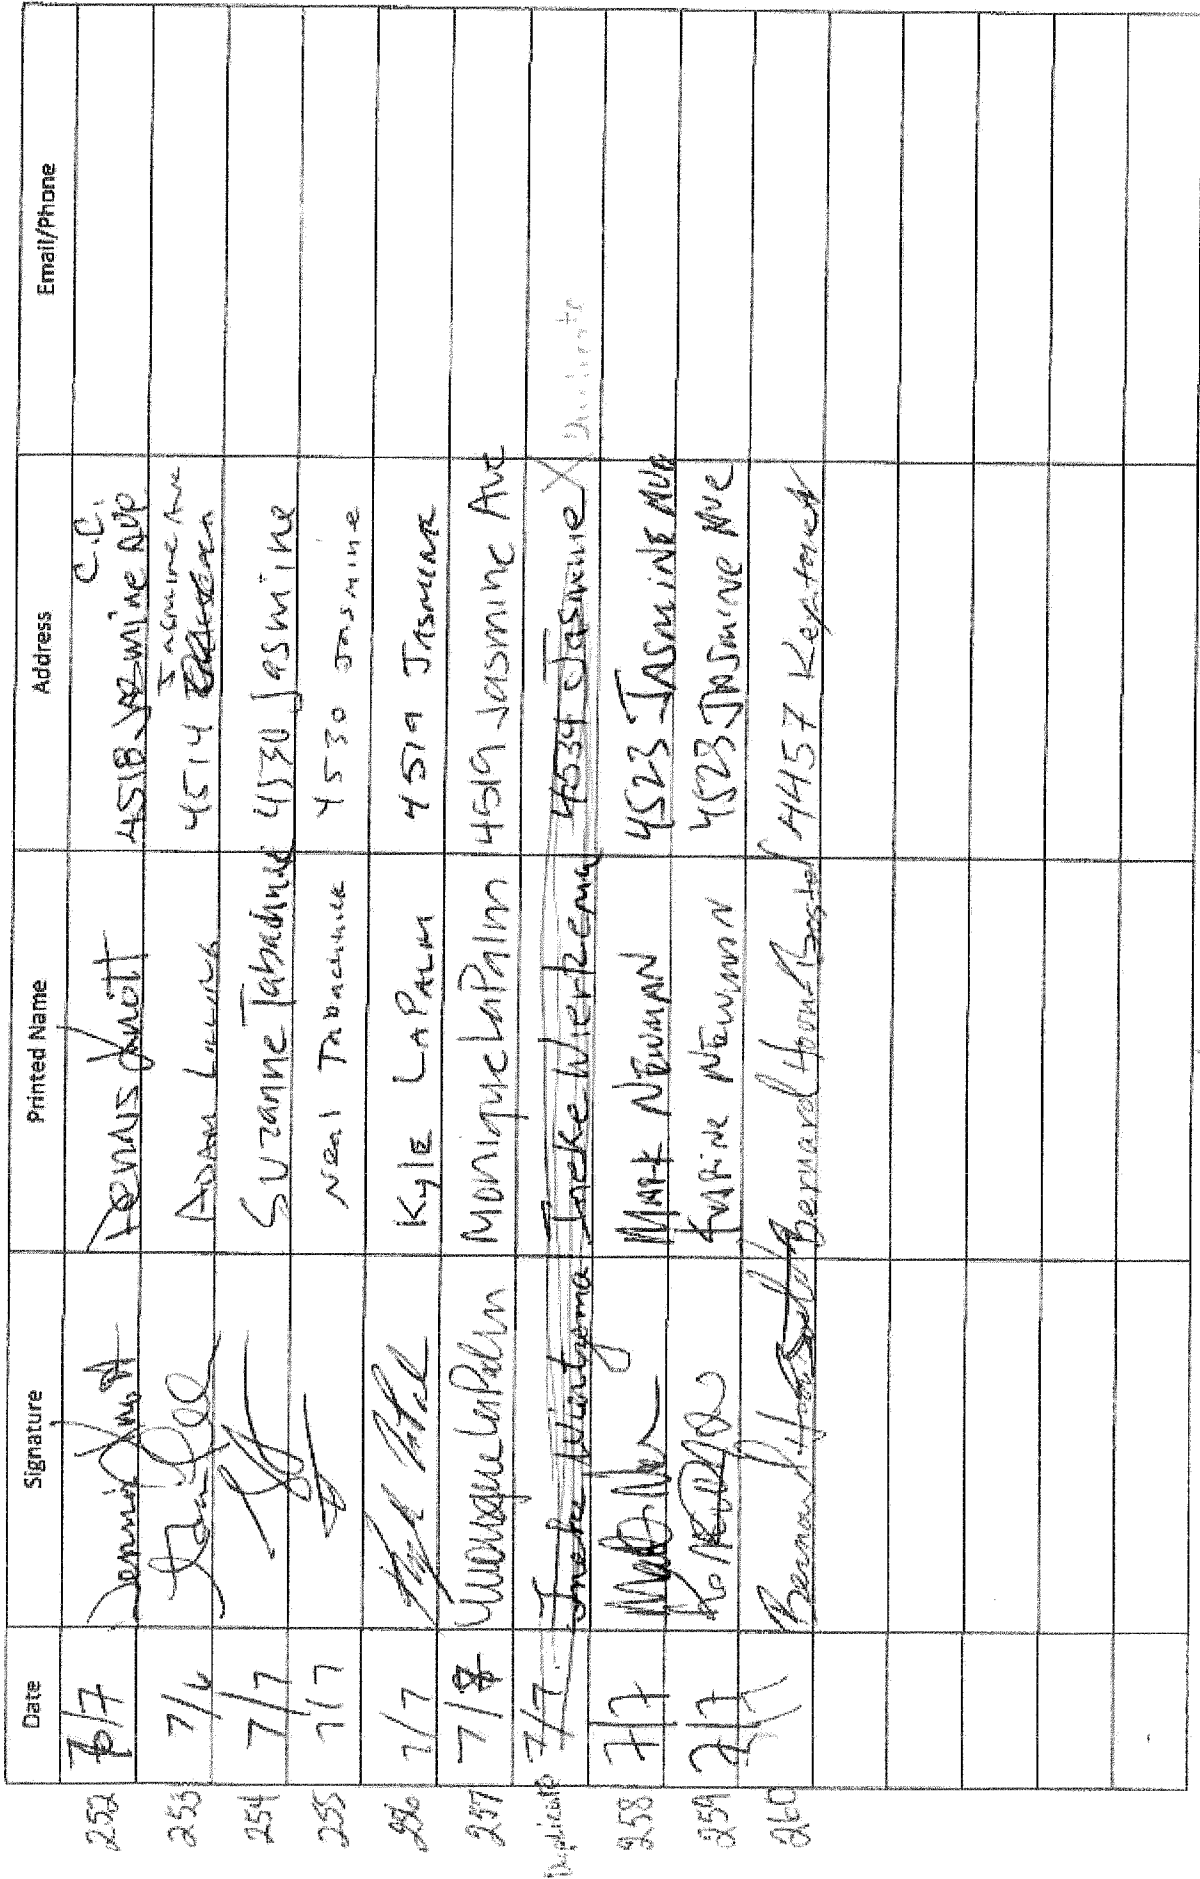 Date Signature Printed Name Address Email/Phone
252 7/7 Dennis Knott Dennis Knott 4518 Jazmine Ave C.C.
253 7/6 Adam 4514 Jasmine Ave
254 7/7 Suzanne Tabachnick 4530 Jasmine
255 7/7 Neal Tabachnick 4530 Jasmine
256 7/7 Kyle LaPalm 4519 Jasmine
257 7/8 Monique LaPalm Monique LaPalm 4519 Jasmine Ave
Duplicate 7/7 Ineke Wierzema 4534 Jasmine X Duplicate
258 7/7 Mark Newman 4523 Jasmine Ave
259 7/7 Newman 4523 Jasmine Ave
260 Bernard 4457 Keystone